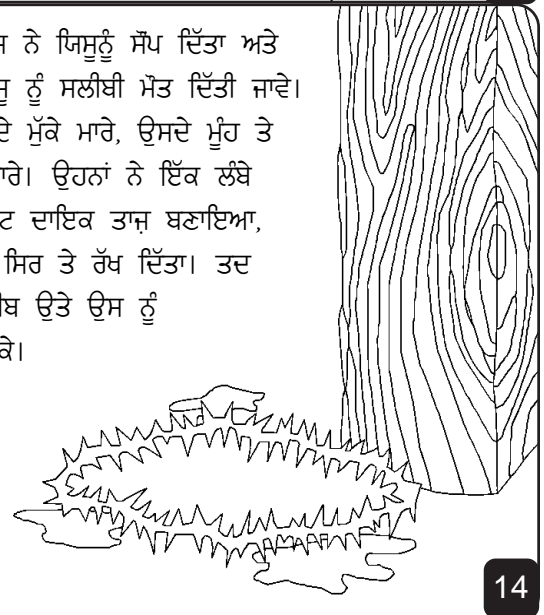 ਨੇ ਯਿਸੂਨੂੰ ਸੌਂਪ ਦਿੱਤਾ ਅਤੇ
ਨੂੰ ਸਲੀਬੀ ਮੌਤ ਦਿੱਤੀ ਜਾਵੇ।
ਮੁੱਕੇ ਮਾਰੇ, ਉਸਦੇ ਮੂੰਹ ਤੇ
ਉਹਨਾਂ ਨੇ ਇੱਕ ਲੰਬੇ
ਦਾਇਕ ਤਾਜ਼ ਬਣਾਇਆ,
ਸਿਰ ਤੇ ਰੱਖ ਦਿੱਤਾ। ਤਦ
ਉਤੇ ਉਸ ਨੂੰ
14